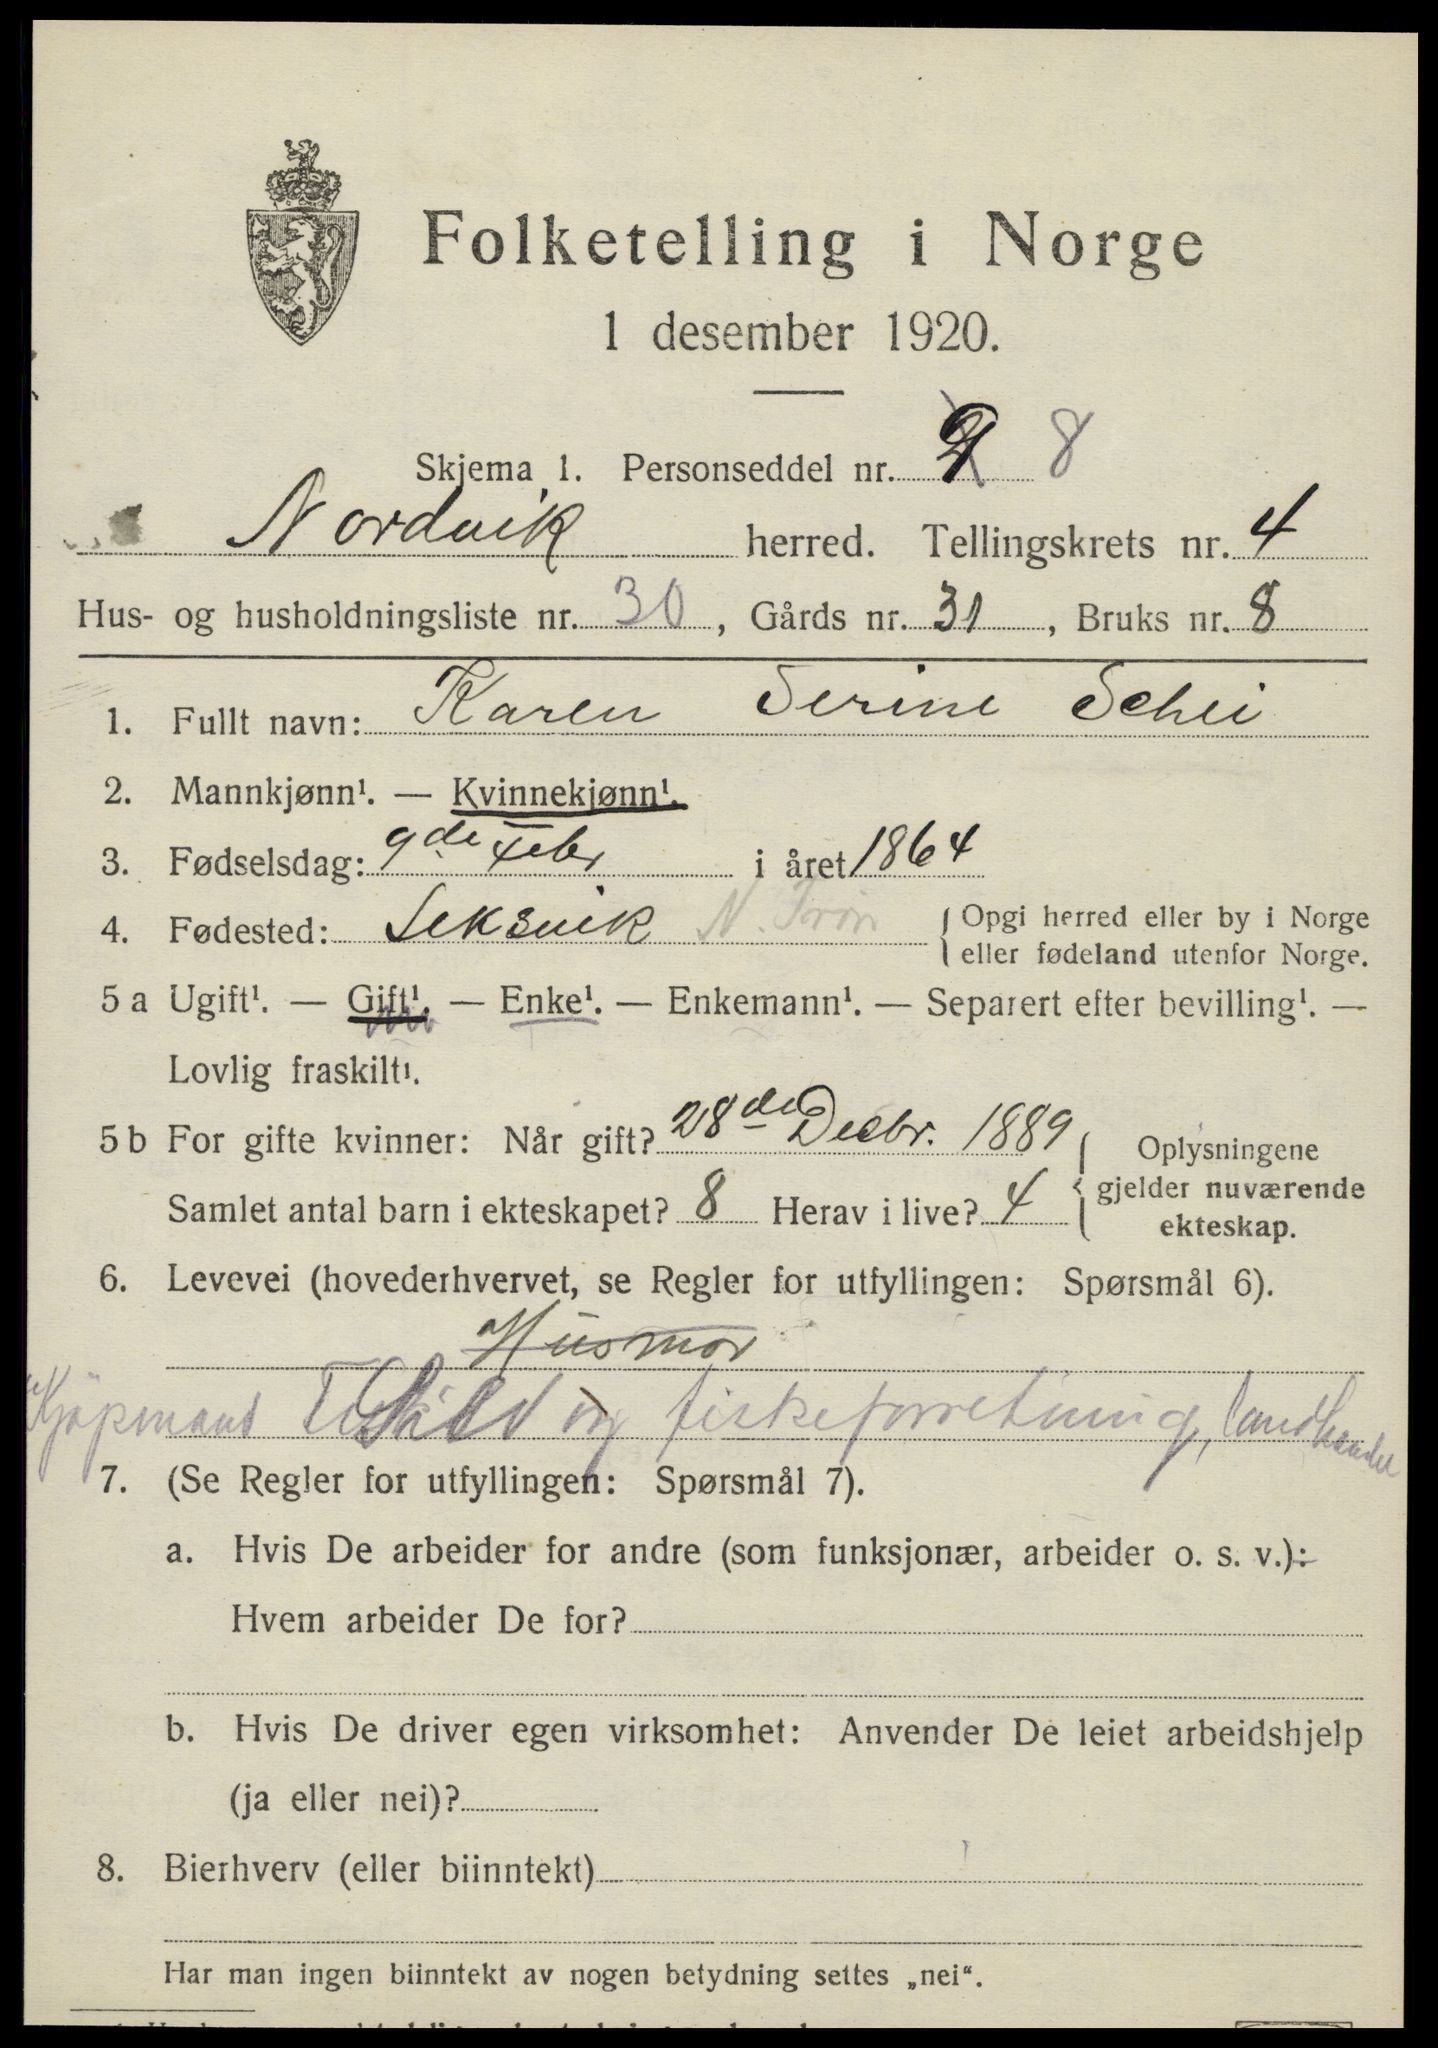 Folketelling i Norge
1 desember 1920.
Skjema 1. Personseddel nr. 8
Nordvik herred. Tellingskrets nr. 4
Hus- og husholdningsliste nr. 30, Gårds nr. 31, Bruks nr. 8
1. Fullt navn: Karen Serine Schei
2. Mannkjønn¹. — Kvinnekjønn¹.
3. Fødselsdag: 9de Febr i året 1864
4. Fødested: Leksvik N. Trøn { Opgi herred eller by i Norge
eller fødeland utenfor Norge.
5 a Ugift¹. — Gift¹. — Enke¹. — Enkemann¹. — Separert efter bevilling¹. —
Lovlig fraskilt¹.
5 b For gifte kvinner: Når gift? 28de Decbr. 1889 { Oplysningene
Samlet antal barn i ekteskapet? 8 Herav i live? 4 gjelder nuværende
ekteskap.
6. Levevei (hovederhvervet, se Regler for utfyllingen: Spørsmål 6).
Husmor
Kjøpmans og fiskeforretning, landhandel
7. (Se Regler for utfyllingen: Spørsmål 7).
a. Hvis De arbeider for andre (som funksjonær, arbeider o. s. v.):
Hvem arbeider De for?
b. Hvis De driver egen virksomhet: Anvender De leiet arbeidshjelp
(ja eller nei)?
8. Bierhverv (eller biinntekt)
Har man ingen biinntekt av nogen betydning settes „nei“.